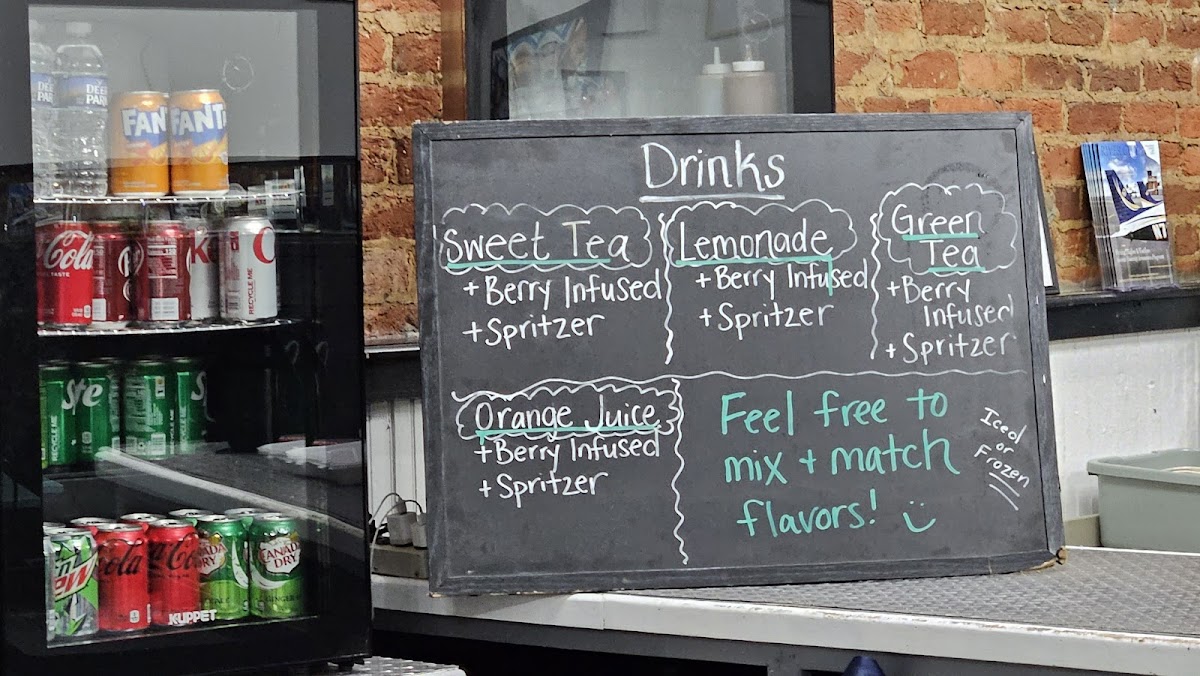 DEER
PARK
FANT
FANTA
Coca
Cola
TASTE
RECYCLE ME
Drinks
Sweet Tea
+ Berry Infused
+ Spritzer
Lemonade
+ Berry Infused
+ Spritzer
Green
Tea
+ Berry
Infused
+ Spritzer
Orange Juice
+ Berry Infused
+ Spritzer
Feel free to
mix + match
flavors!
Iced
or
Frozen
RECYCLE ME
CANADA
DRY
CANADA
DRY
KUPPET